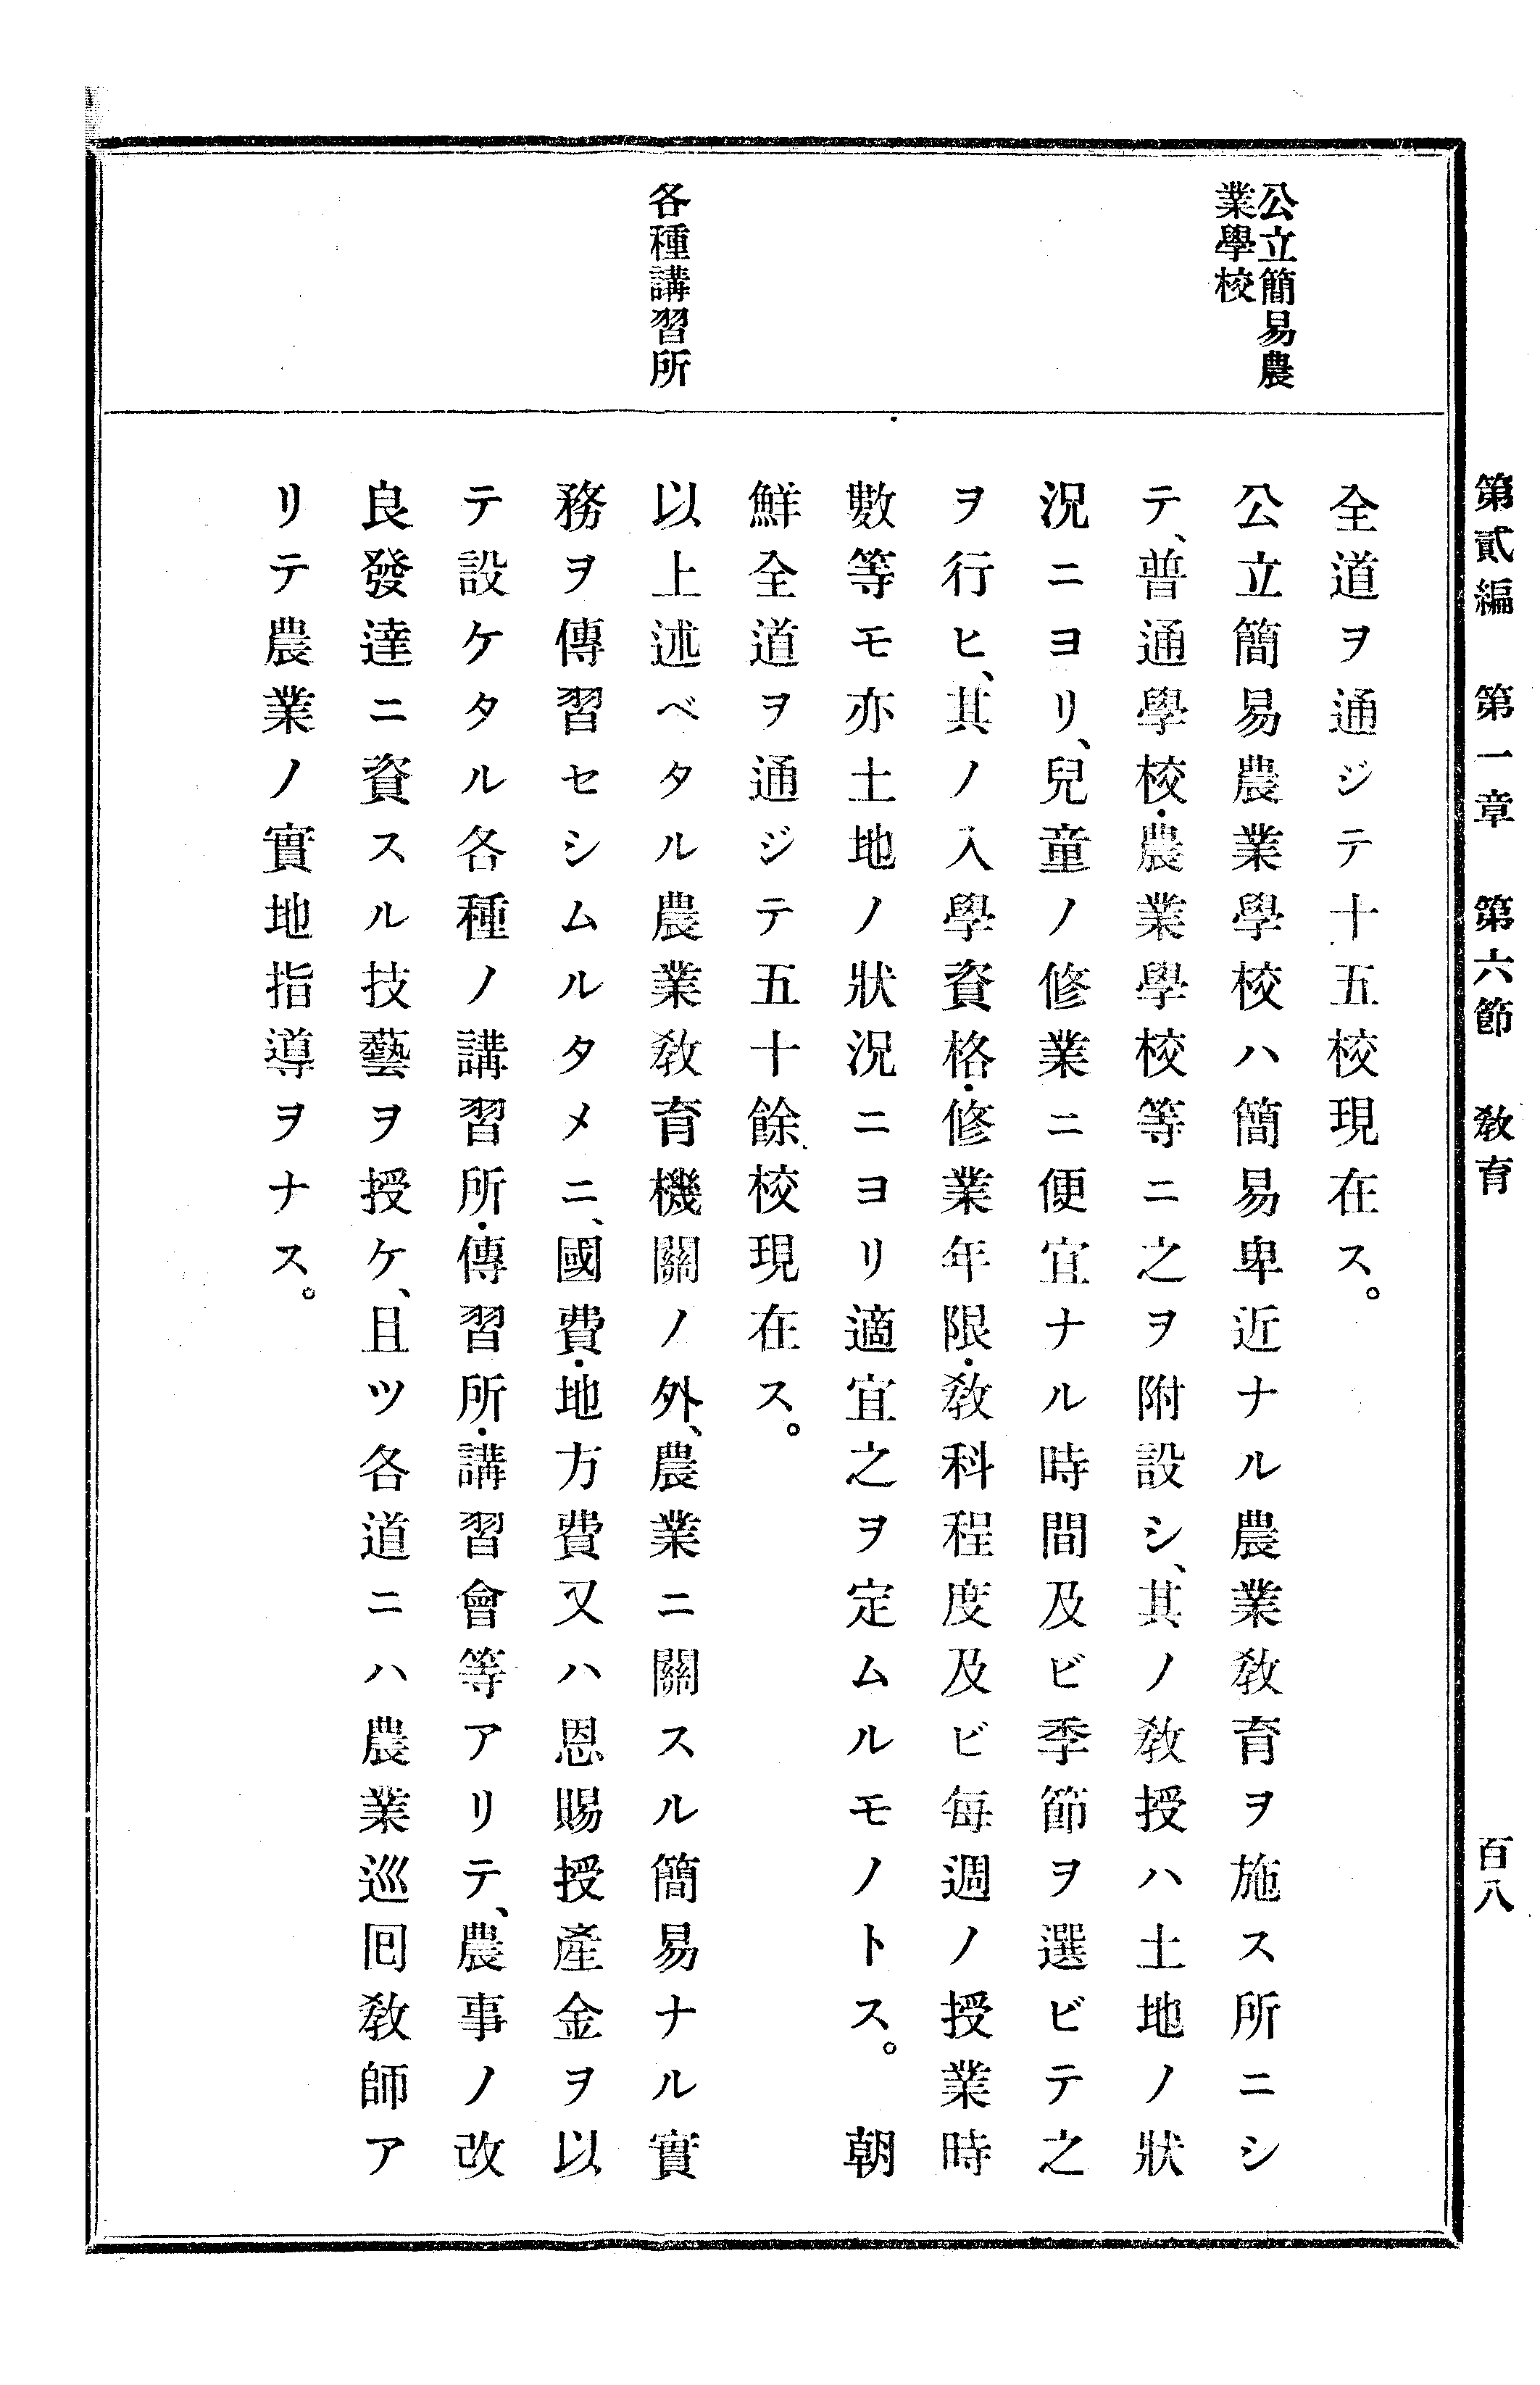 第貳編　第一章　第六節　教育
百八
公立簡易農
業學校
各種講習所
全道ヲ通ジテ十五校現在ス。
公立簡易農業學校ハ簡易卑近ナル農業教育ヲ施ス所ニシ
テ、普通學校・農業學校等ニ之ヲ附設シ、其ノ教授ハ土地ノ狀
況ニヨリ、兒童ノ修業ニ便宜ナル時間及ビ季節ヲ選ビテ之
ヲ行ヒ、其ノ入學資格・修業年限・教科程度及ビ每週ノ授業時
數等モ亦土地ノ狀況ニヨリ適宜之ヲ定ムルモノトス。　朝
鮮全道ヲ通ジテ五十餘校現在ス。
以上述ベタル農業教育機關ノ外、農業ニ關スル簡易ナル實
務ヲ傳習セシムルタメニ、國費・地方費又ハ恩賜授產金ヲ以
テ設ケタル各種ノ講習所・傳習所・講習會等アリテ、農事ノ改
良發達ニ資スル技藝ヲ授ケ、且ツ各道ニハ農業巡囘教師ア
リテ農業ノ實地指導ヲナス。